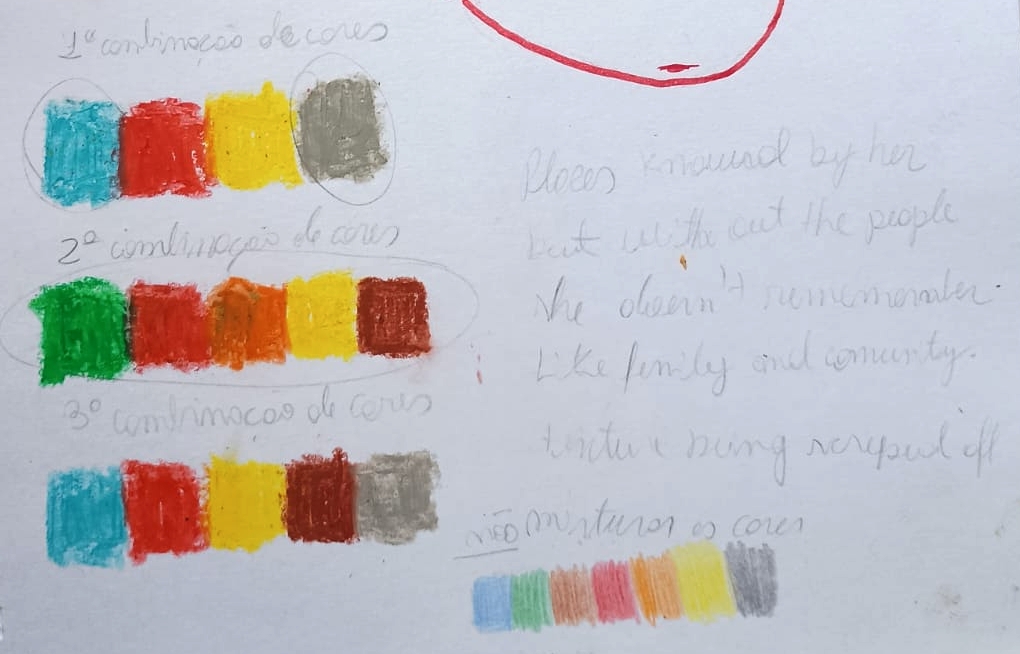 1ª combinação de cores
2ª combinação de cores
3º combinação de cores
Places knowned by her
but with out the people
she doesn't rememember.
Like family and comunity.
texture being scraped off
não misturar as cores